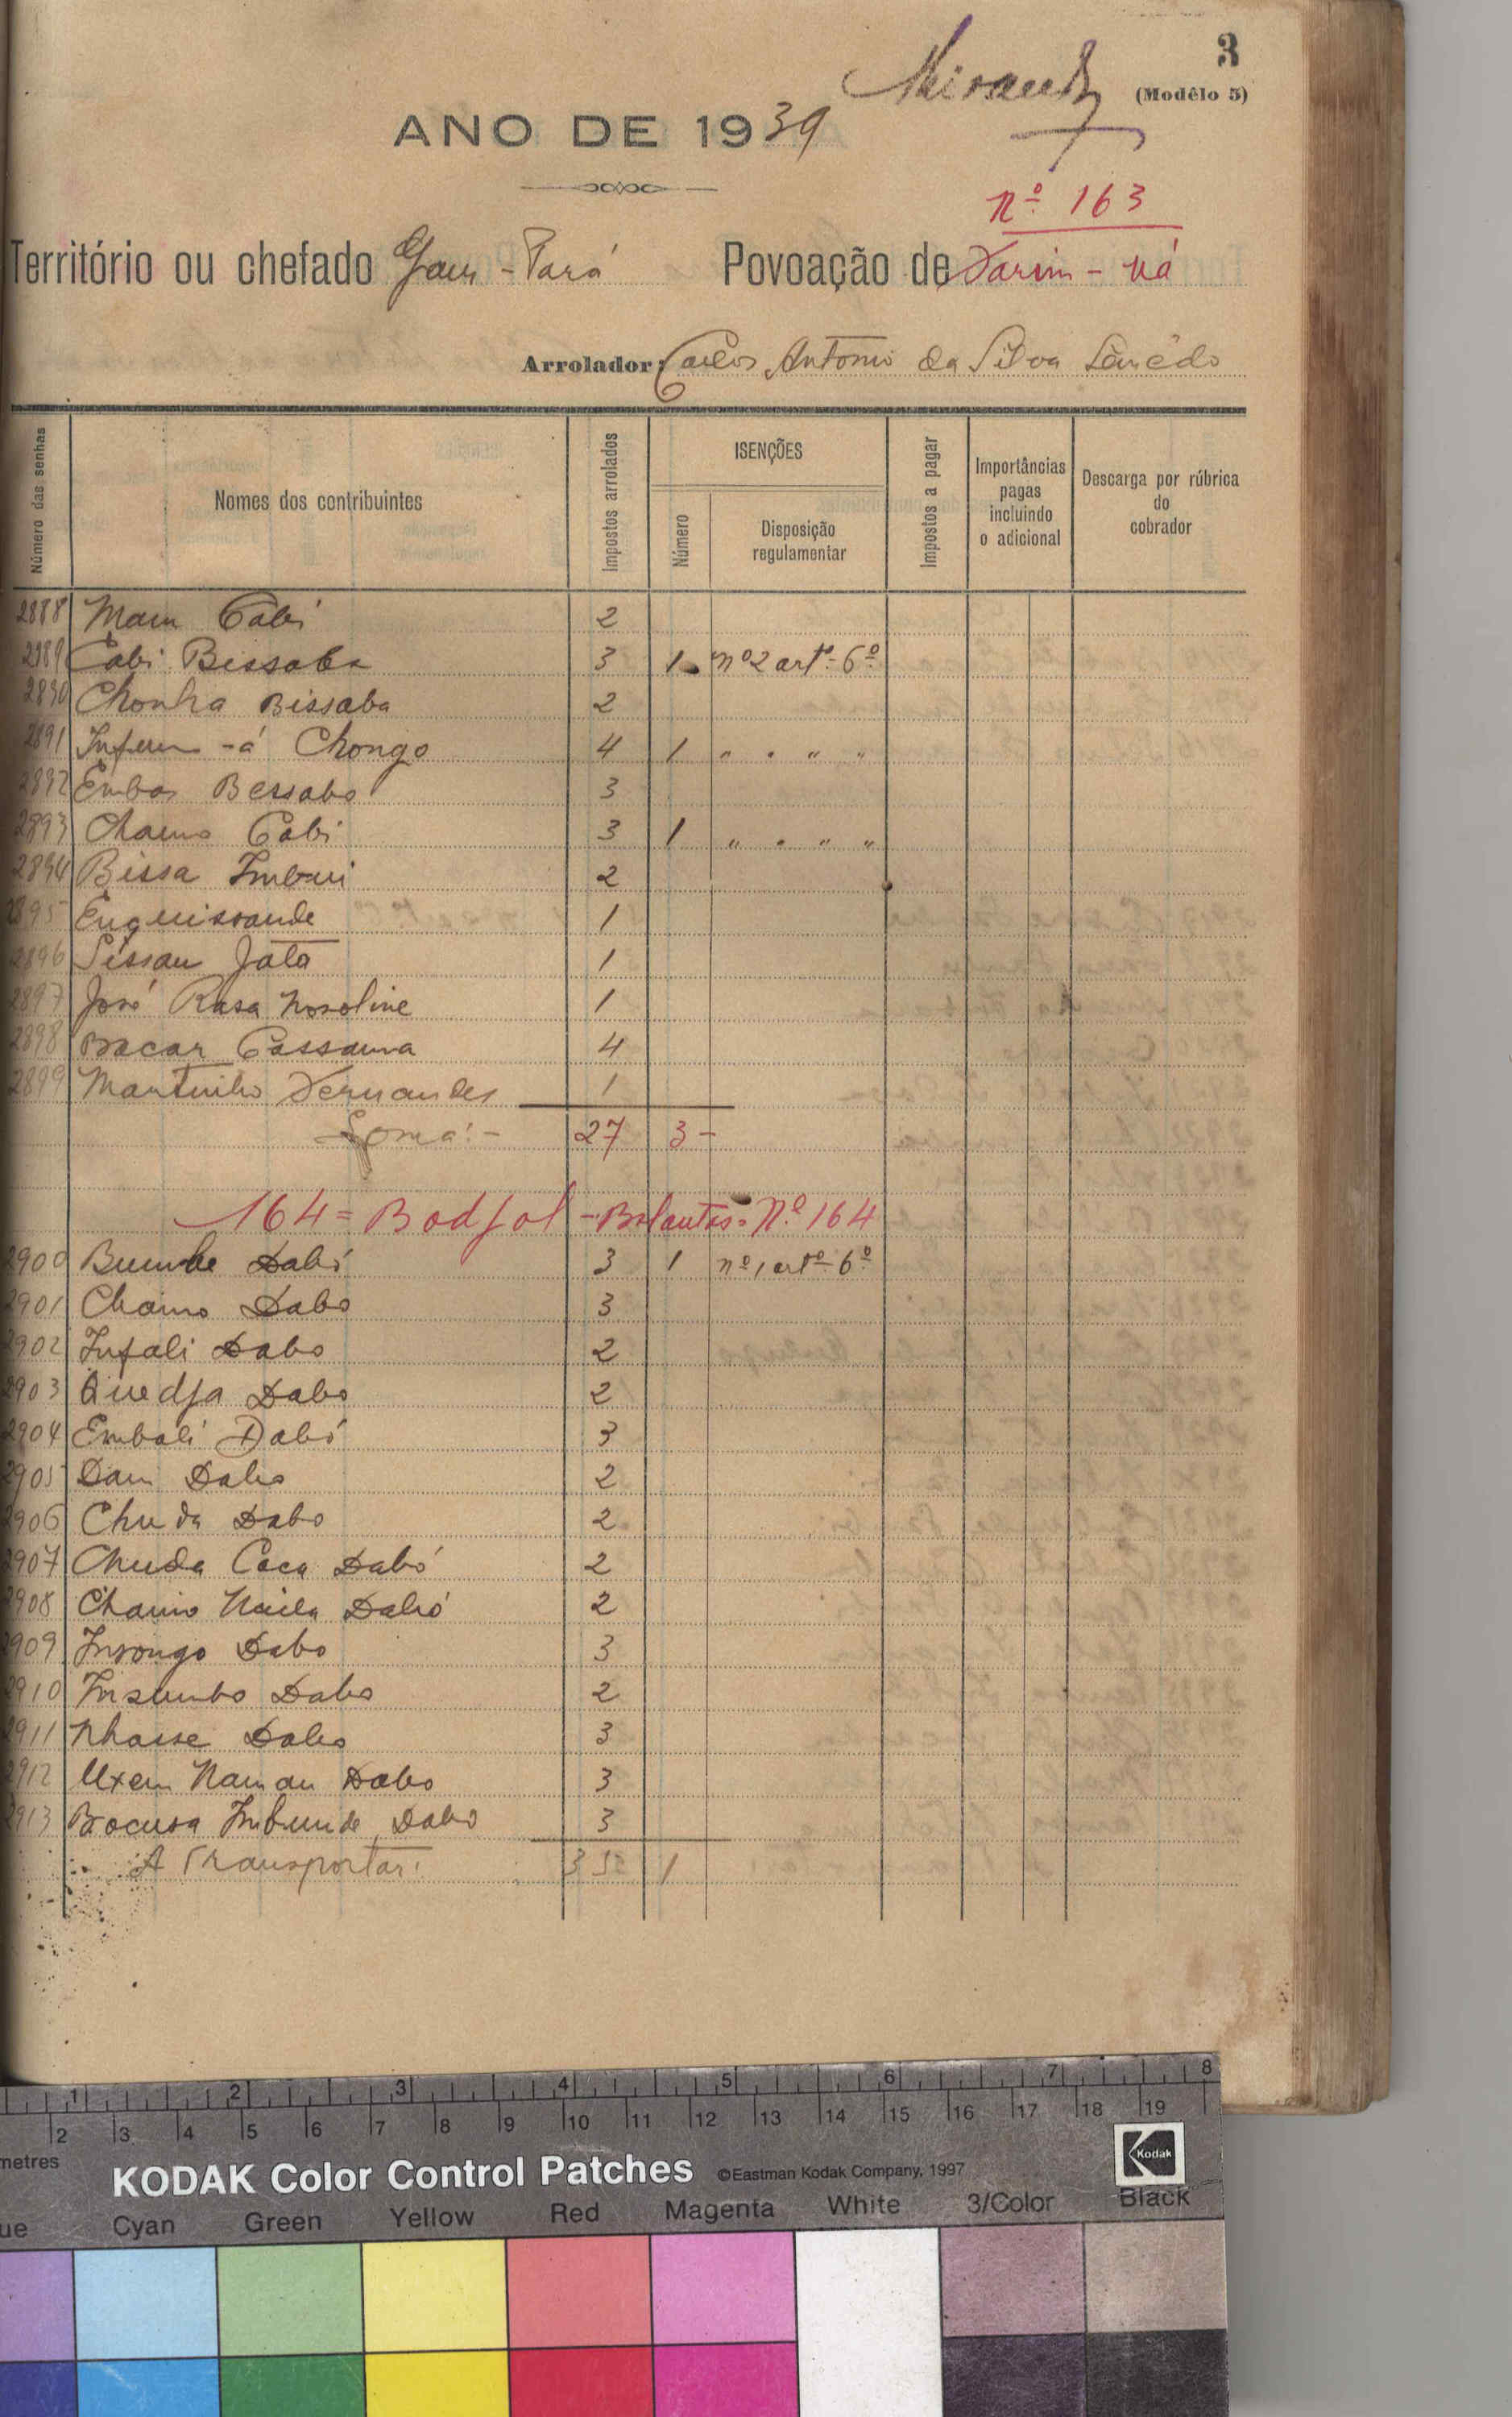 3
(Modêlo 5)
ANO DE 1939
Nº 163
Território ou chefado Povoação de
Arrolador: Carlos Antonio da Silva
Número das senhas
Nomes dos contribuintes
Impostos arrolados
ISENÇÕES
Número
Disposição regulamentar
Impostos a pagar
Importâncias pagas incluindo o adicional
Descarga por rúbrica do cobrador
2888 Mam Cabi 2
2889 Cabi Bissaba 3 1 nº2 artº 6º
2890 Chonha Bissaba 2
2891 -á Chongo 4 1 " " " "
2892 Embas Bessabo 3
2893 Chamo Cabi 3 1 " " " "
2894 Bissa 2
2895 1
2896 1
2897 José Rasa 1
2898 Bacar Cassama 4
2899 Martinho Fernandes 1
Soma:- 27 3-
164 = Badjol - Balantas - Nº 164
2900 Dabó 3 1 nº1 artº 6º
2901 Chamo Dabo 3
2902 Infali Dabo 2
2903 Quedja Dabo 2
2904 Embali Dabó 3
2905 Dam Dabo 2
2906 Chuda Dabo 2
2907 Chuda Caca Dabó 2
2908 Chamo Dabó 2
2909 Insongo Dabo 3
2910 Dabo 2
2911 Nhasse Dabo 3
2912 Dabo 3
2913 Dabo 3
A Transportar: 35 1
1 2 3 4 5 6 7 8
2 3 4 5 6 7 8 9 10 11 12 13 14 15 16 17 18 19
metres
KODAK Color Control Patches ©Eastman Kodak Company, 1997 Kodak
ue Cyan Green Yellow Red Magenta White 3/Color Black